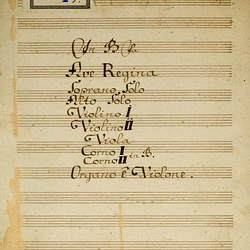 Ave Regina
Soprano Solo
Alto Solo
Violino I
Violino II
Viola
Corno I
Corno II in B.
Organo è Violone.